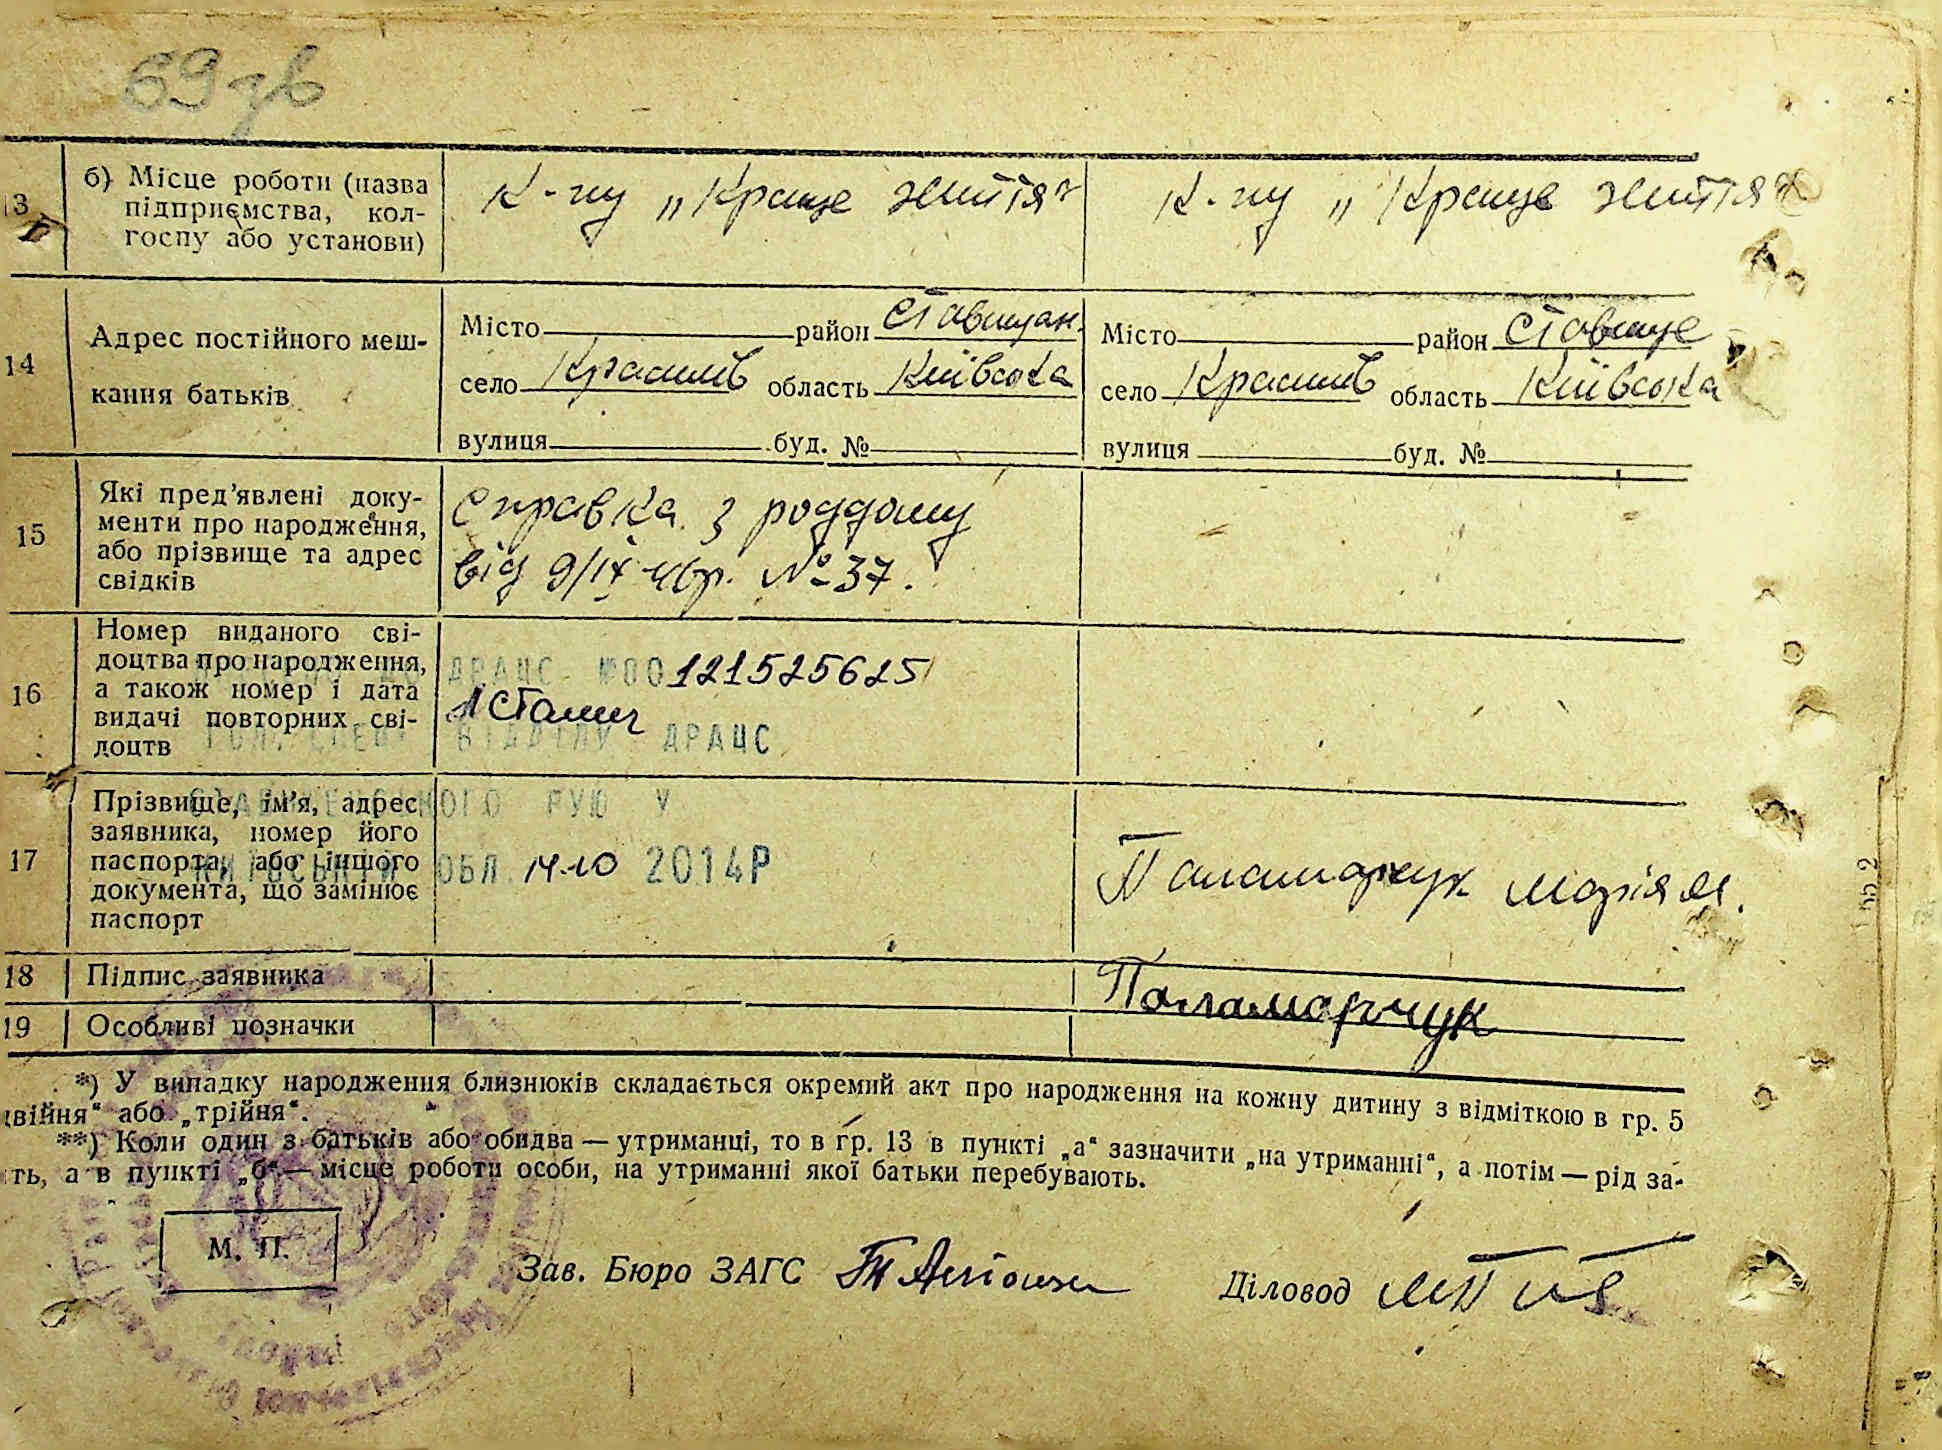 69 зв
13 б) Місце роботи (назва підприємства, колгоспу або установи)
К-пу „Краще життя“
К-пу „Краще життя“
14 Адрес постійного мешкання батьків
Місто район Ставищан.
село Красилів область Київська
вулиця буд. №
Місто район Ставище
село Красилів область Київська
вулиця буд. №
15 Які пред’явлені документи про народження, або прізвище та адрес свідків
Справка з роддому
від 9/ІХ 46р. № 37.
16 Номер виданого свідоцтва про народження, а також номер і дата видачі повторних свідоцтв
ДРАЦС №00121525625
ГОЛ. СПЕЦ. ВІДДІЛУ ДРАЦС
17 Прізвище, ім’я, адрес заявника, номер його паспорта, або іншого документа, що замінює паспорт
СТАВИЩЕНСЬКОГО РУЮ У
КИЇВСЬКІЙ ОБЛ. 14.10 2014Р
Паламарчук Марія М.
18 Підпис заявника
Паламарчук
19 Особливі позначки
*) У випадку народження близнюків складається окремий акт про народження на кожну дитину з відміткою в гр. 5
двійня“ або „трійня“.
**) Коли один з батьків або обидва — утриманці, то в гр. 13 в пункті „а“ зазначити „на утриманні“, а потім — рід за-
ть, а в пункті „б“ — місце роботи особи, на утриманні якої батьки перебувають.
М. П.
Зав. Бюро ЗАГС
Діловод